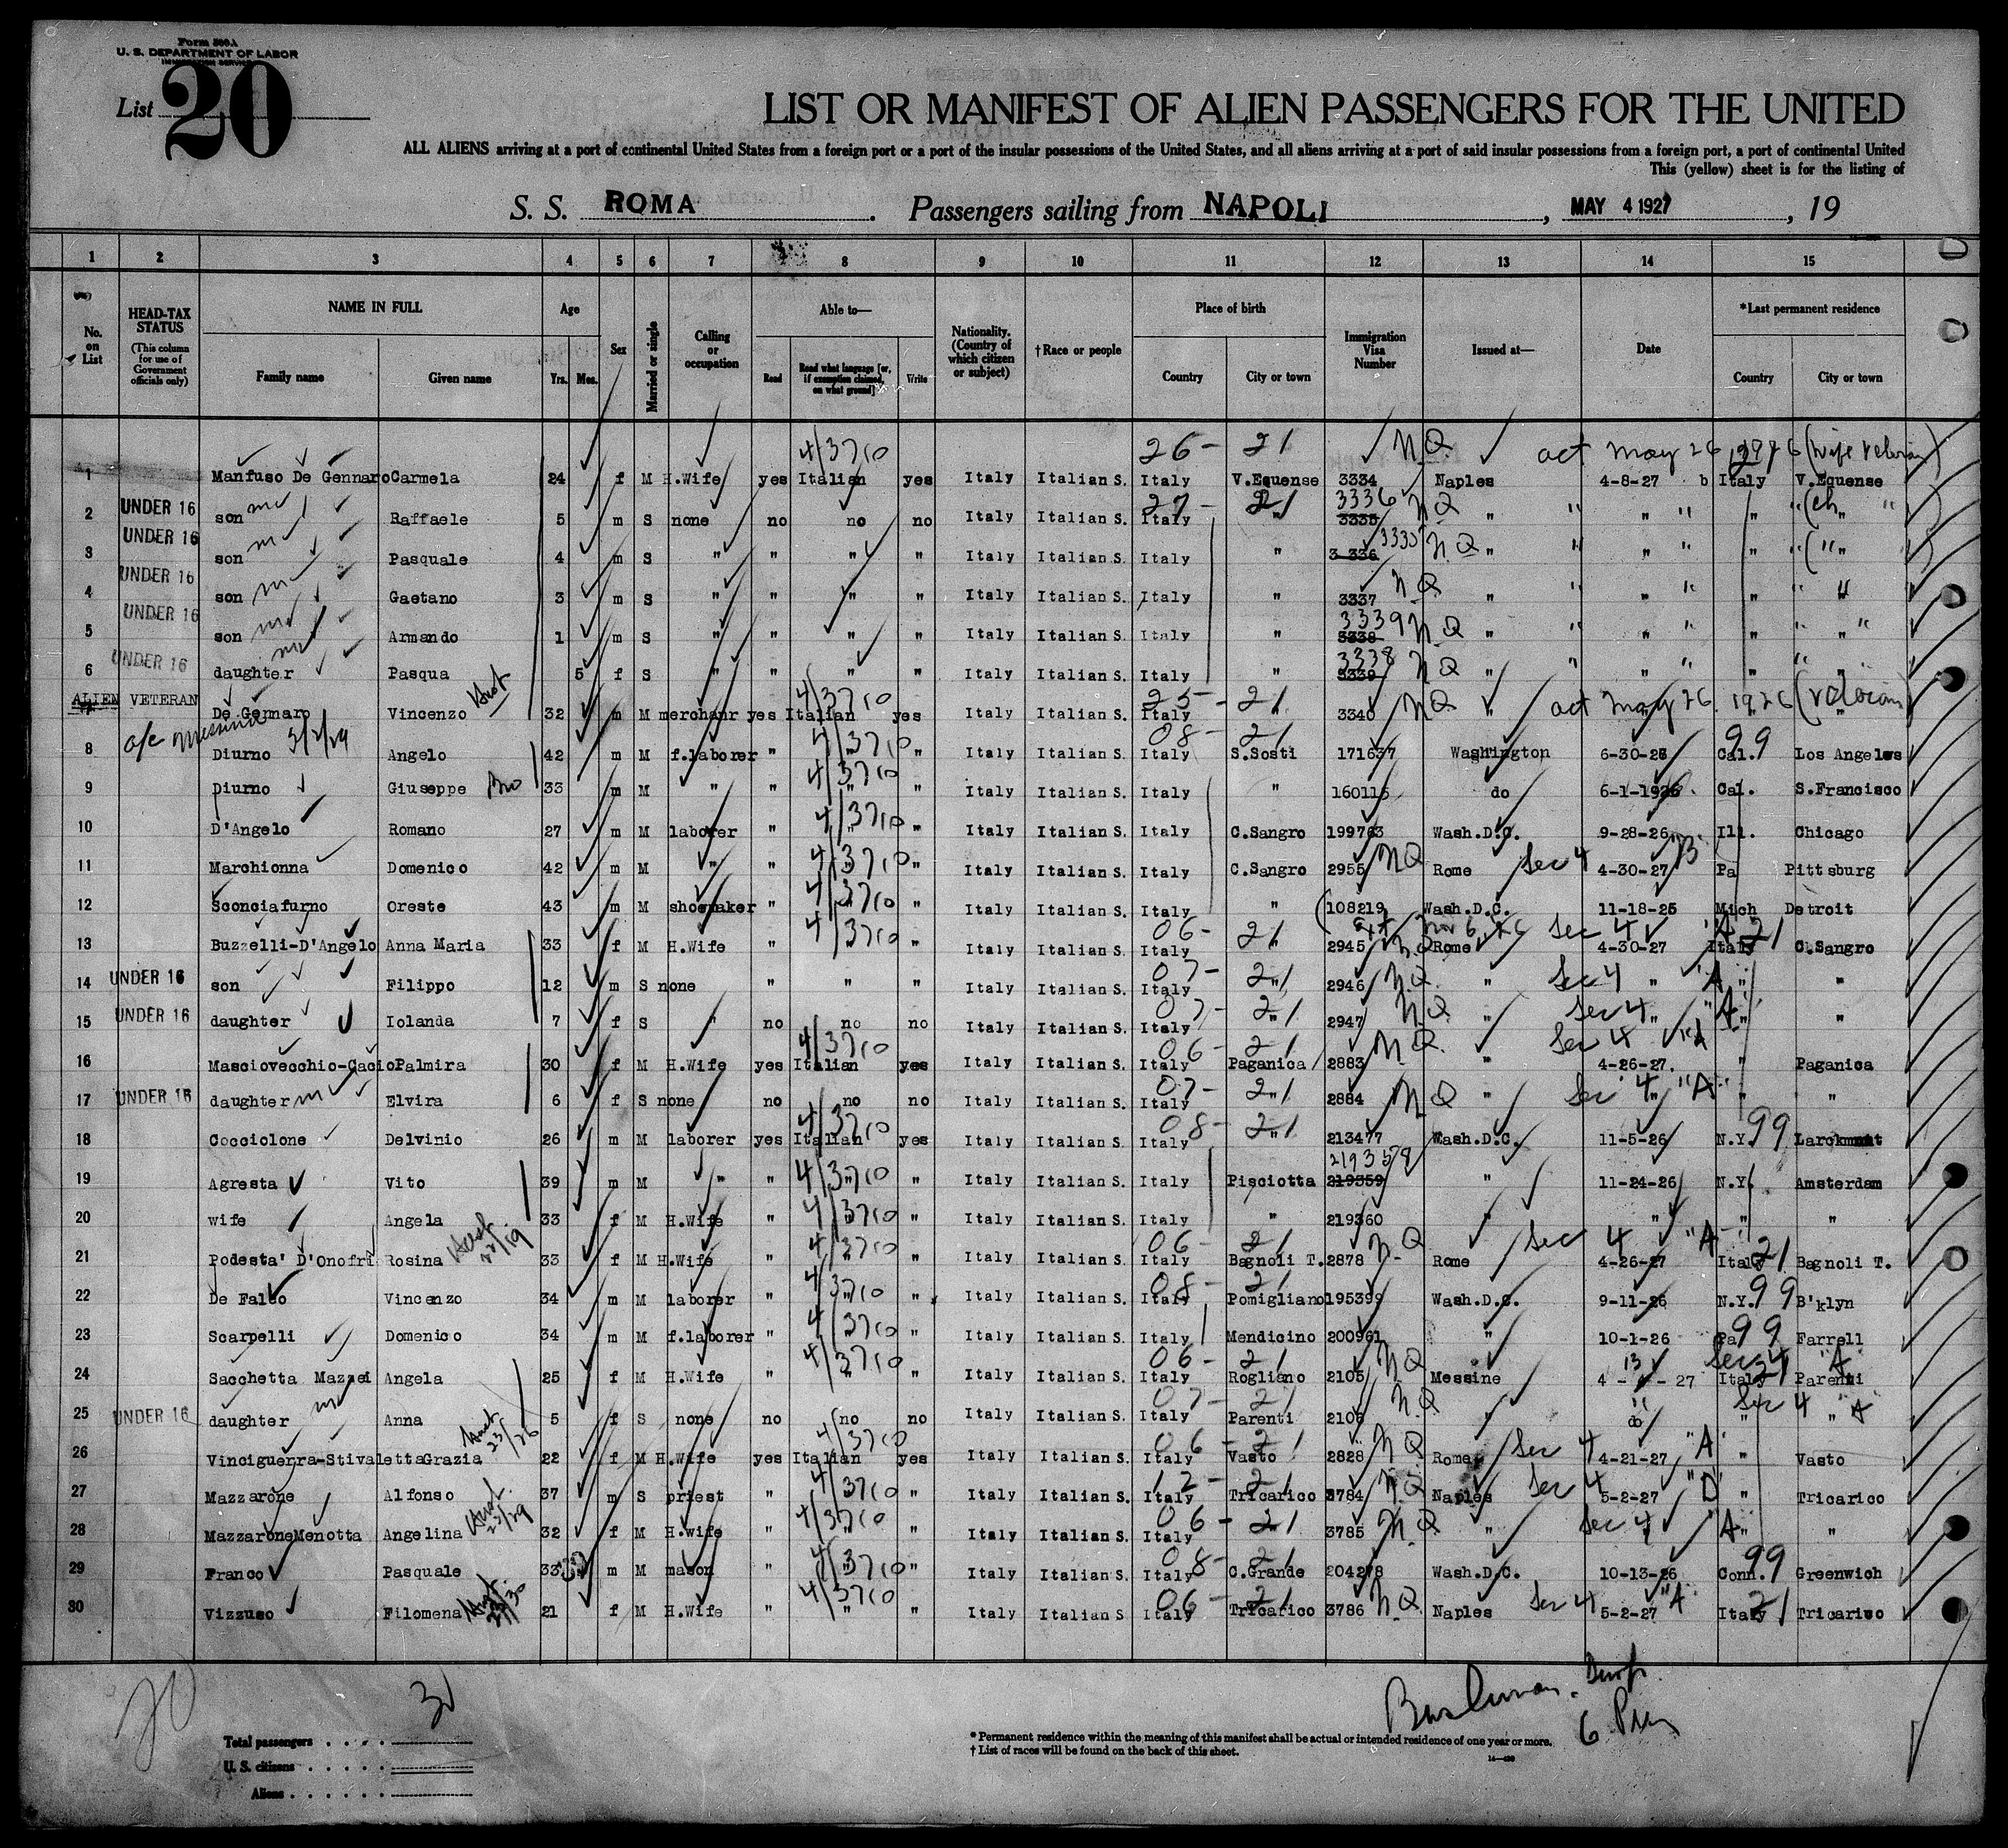 Form 500 A
U. S. DEPARTMENT OF LABOR
IMMIGRATION SERVICE
List 20
LIST OR MANIFEST OF ALIEN PASSENGERS FOR THE UNITED
ALL ALIENS arriving at a port of continental United States from a foreign port or a port of the insular possessions of the United States, and all aliens arriving at a port of said insular possessions from a foreign port, a port of continental United
This (yellow) sheet is for the listing of
S. S. ROMA. Passengers sailing from NAPOLI, MAY 4 1927, 19
1 2 3 4 5 6 7 8 9 10 11 12 13 14 15
No. on List
HEAD-TAX STATUS (This column for use of Government officials only)
NAME IN FULL Family name Given name
Age Yrs. Mos.
Sex
Married or single
Calling or occupation
Able to— Read Read what language [or, if exemption claimed, on what ground] Write
Nationality. (Country of which citizen or subject)
†Race or people
Place of birth Country City or town
Immigration Visa Number
Issued at—
Date
*Last permanent residence Country City or town
4/3710 26- 21 NQ act may 26 1926 (wife veteran)
1 Manfuso De Gennaro Carmela 24 f M H.Wife yes Italian yes Italy Italian S. Italy V.Equense 3334 Naples 4-8-27 b Italy V.Equense
2 UNDER 16 son Raffaele 5 m S none no no no Italy Italian S. Italy 27- 21 " 3336 3335 NQ " " " " " " (ch "
3 UNDER 16 son Pasquale 4 m S " " " " Italy Italian S. Italy " 3335 3336 NQ " " " " " "
4 UNDER 16 son Gaetano 3 m S " " " " Italy Italian S. Italy " 3337 NQ " " " " " "
5 UNDER 16 son Armando 1 m S " " " " Italy Italian S. Italy " 3339 3338 NQ " " " " " "
6 UNDER 16 daughter Pasqua 5 f S " " " " Italy Italian S. Italy " 3338 3339 NQ " " " " " "
ALIEN VETERAN De Gennaro Vincenzo 32 m M merchanr yes Italian 4/3710 yes Italy Italian S. Italy 25- 21 " 3340 NQ " act may 26 1926 (veteran)
8 Diurno 3/2/29 Angelo 42 m M f.laborer " 4/3710 " Italy Italian S. Italy 08- 21 S.Sosti 171637 Washington 6-30-26 Cal. 99 Los Angeles
9 Diurno Giuseppe Bro 33 m M " " 4/3710 " Italy Italian S. Italy " 160115 do 6-1-1926 Cal. S.Francisco
10 D'Angelo Romano 27 m M laborer " 4/3710 " Italy Italian S. Italy C.Sangro 199763 Wash.D.C. 9-28-26 Ill. Chicago
11 Marchionna Domenico 42 m M " " 4/3710 " Italy Italian S. Italy C.Sangro 2955 NQ Rome Sec 4 4-30-27 "B" Pa Pittsburg
12 Sconciafurno Oreste 43 m M shoemaker " 4/3710 " Italy Italian S. Italy " 108219 Wash.D.C. 11-18-25 Mich Detroit
13 Buzzelli-D'Angelo Anna Maria 33 f M H.Wife " 4/3710 " Italy Italian S. Italy 06- 21 " 2945 NQ Rome Sec 4 4-30-27 "A" Italy 21 C.Sangro
14 UNDER 16 son Filippo 12 m S none " " " Italy Italian S. Italy 07- 21 " 2946 NQ " Sec 4 " "A" " "
15 UNDER 16 daughter Iolanda 7 f S " no no no Italy Italian S. Italy 07- 21 " 2947 NQ " Sec 4 " "A" " "
16 Masciovecchio-Cacio Palmira 30 f M H.Wife yes Italian 4/3710 yes Italy Italian S. Italy 06- 21 Paganica 2883 NQ " Sec 4 4-26-27. "A" " Paganica
17 UNDER 16 daughter Elvira 6 f S none no no no Italy Italian S. Italy 07- 21 " 2884 NQ " Sec 4 " "A" " "
18 Cocciolone Delvinio 26 m M laborer yes Italian 4/3710 yes Italy Italian S. Italy 08- 21 " 213477 Wash.D.C. 11-5-26 N.Y. 99 Larckmont
19 Agresta Vito 39 m M " " 4/3710 " Italy Italian S. Italy Pisciotta 219359 219359 " 11-24-26 N.Y. Amsterdam
20 wife Angela 33 f M H.Wife " 4/3710 " Italy Italian S. Italy " 219360 " " " "
21 Podesta' D'Onofri Rosina 33 f M H.Wife " 4/3710 " Italy Italian S. Italy 06- 21 Bagnoli T. 2878 NQ Rome Sec 4 4-26-27 "A" Italy 21 Bagnoli T.
22 De Falco Vincenzo 34 m M laborer " 4/3710 " Italy Italian S. Italy 08- 21 Pomigliano 195399 Wash.D.C. 9-11-26 N.Y. 99 B'klyn
23 Scarpelli Domenico 34 m M f.laborer " 4/3710 " Italy Italian S. Italy Mendicino 200961 " 10-1-26 Pa 99 Farrell
24 Sacchetta Mazzei Angela 25 f M H.Wife " 4/3710 " Italy Italian S. Italy 06- 21 Rogliano 2105 NQ Messine 4 - 13 - 27 Sec 4 "A" Italy 21 Parenti
25 UNDER 16 daughter Anna 5 f S none no no no Italy Italian S. Italy 07- 21 Parenti 2106 NQ " do " Sec 4 " A
26 Vinciguerra-Stivaletta Grazia 22 f M H.Wife yes Italian 4/3710 yes Italy Italian S. Italy 06- 21 Vasto 2828 NQ Rome Sec 4 4-21-27 "A" " Vasto
27 Mazzarone Alfonso 37 m S priest " 4/3710 " Italy Italian S. Italy 12- 21 Tricarico 3784 NQ Naples Sec 4 5-2-27 "D" " Tricarico
28 Mazzarone Menotta Angelina 32 f M H.wife " 4/3710 " Italy Italian S. Italy 06- 21 " 3785 NQ " Sec 4 " "A" " "
29 Franco Pasquale 33 m M mason " 4/3710 " Italy Italian S. Italy 08- 21 C.Grande 204278 Wash.D.C. 10-13-26 Conn. 99 Greenwich
30 Vizzuso Filomena 21 f M H.Wife " 4/3710 " Italy Italian S. Italy 06- 21 Tricarico 3786 NQ Naples Sec 4 5-2-27 "A" Italy 21 Tricarico
20
30
Total passengers
U. S. citizens
Aliens
*Permanent residence within the meaning of this manifest shall be actual or intended residence of one year or more.
† List of races will be found on the back of this sheet.